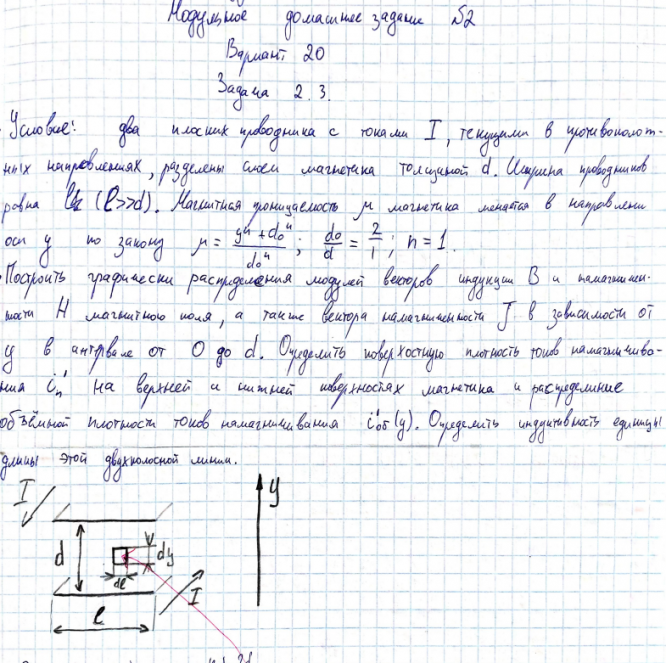 Модульное домашнее задание №2
Вариант 20
Задача 2.3.
Условие: два плоских проводника с токами I, текущими в противополож-
ных направлениях, разделены слоем магнетика толщиной d. Ширина проводников
равна l (l>>d). Магнитная проницаемость μ магнетика меняется в направлении
оси y по закону μ = (yⁿ + d₀ⁿ)/d₀ⁿ; d₀/d = 2/1; n = 1.
Построить графически распределения модулей векторов индукции B и намагничен-
ности H магнитного поля, а также вектора намагниченности J в зависимости от
y в интервале от 0 до d. Определить поверхостную плотность токов намагничива-
ния i'n на верхней и нижней поверхностях магнетика и распределиние
объёмной плотности токов намагничивания i'об(y). Определить индуктивность единицы
длины этой двухполосной линии.
I
y
d
dy
dl
I
l